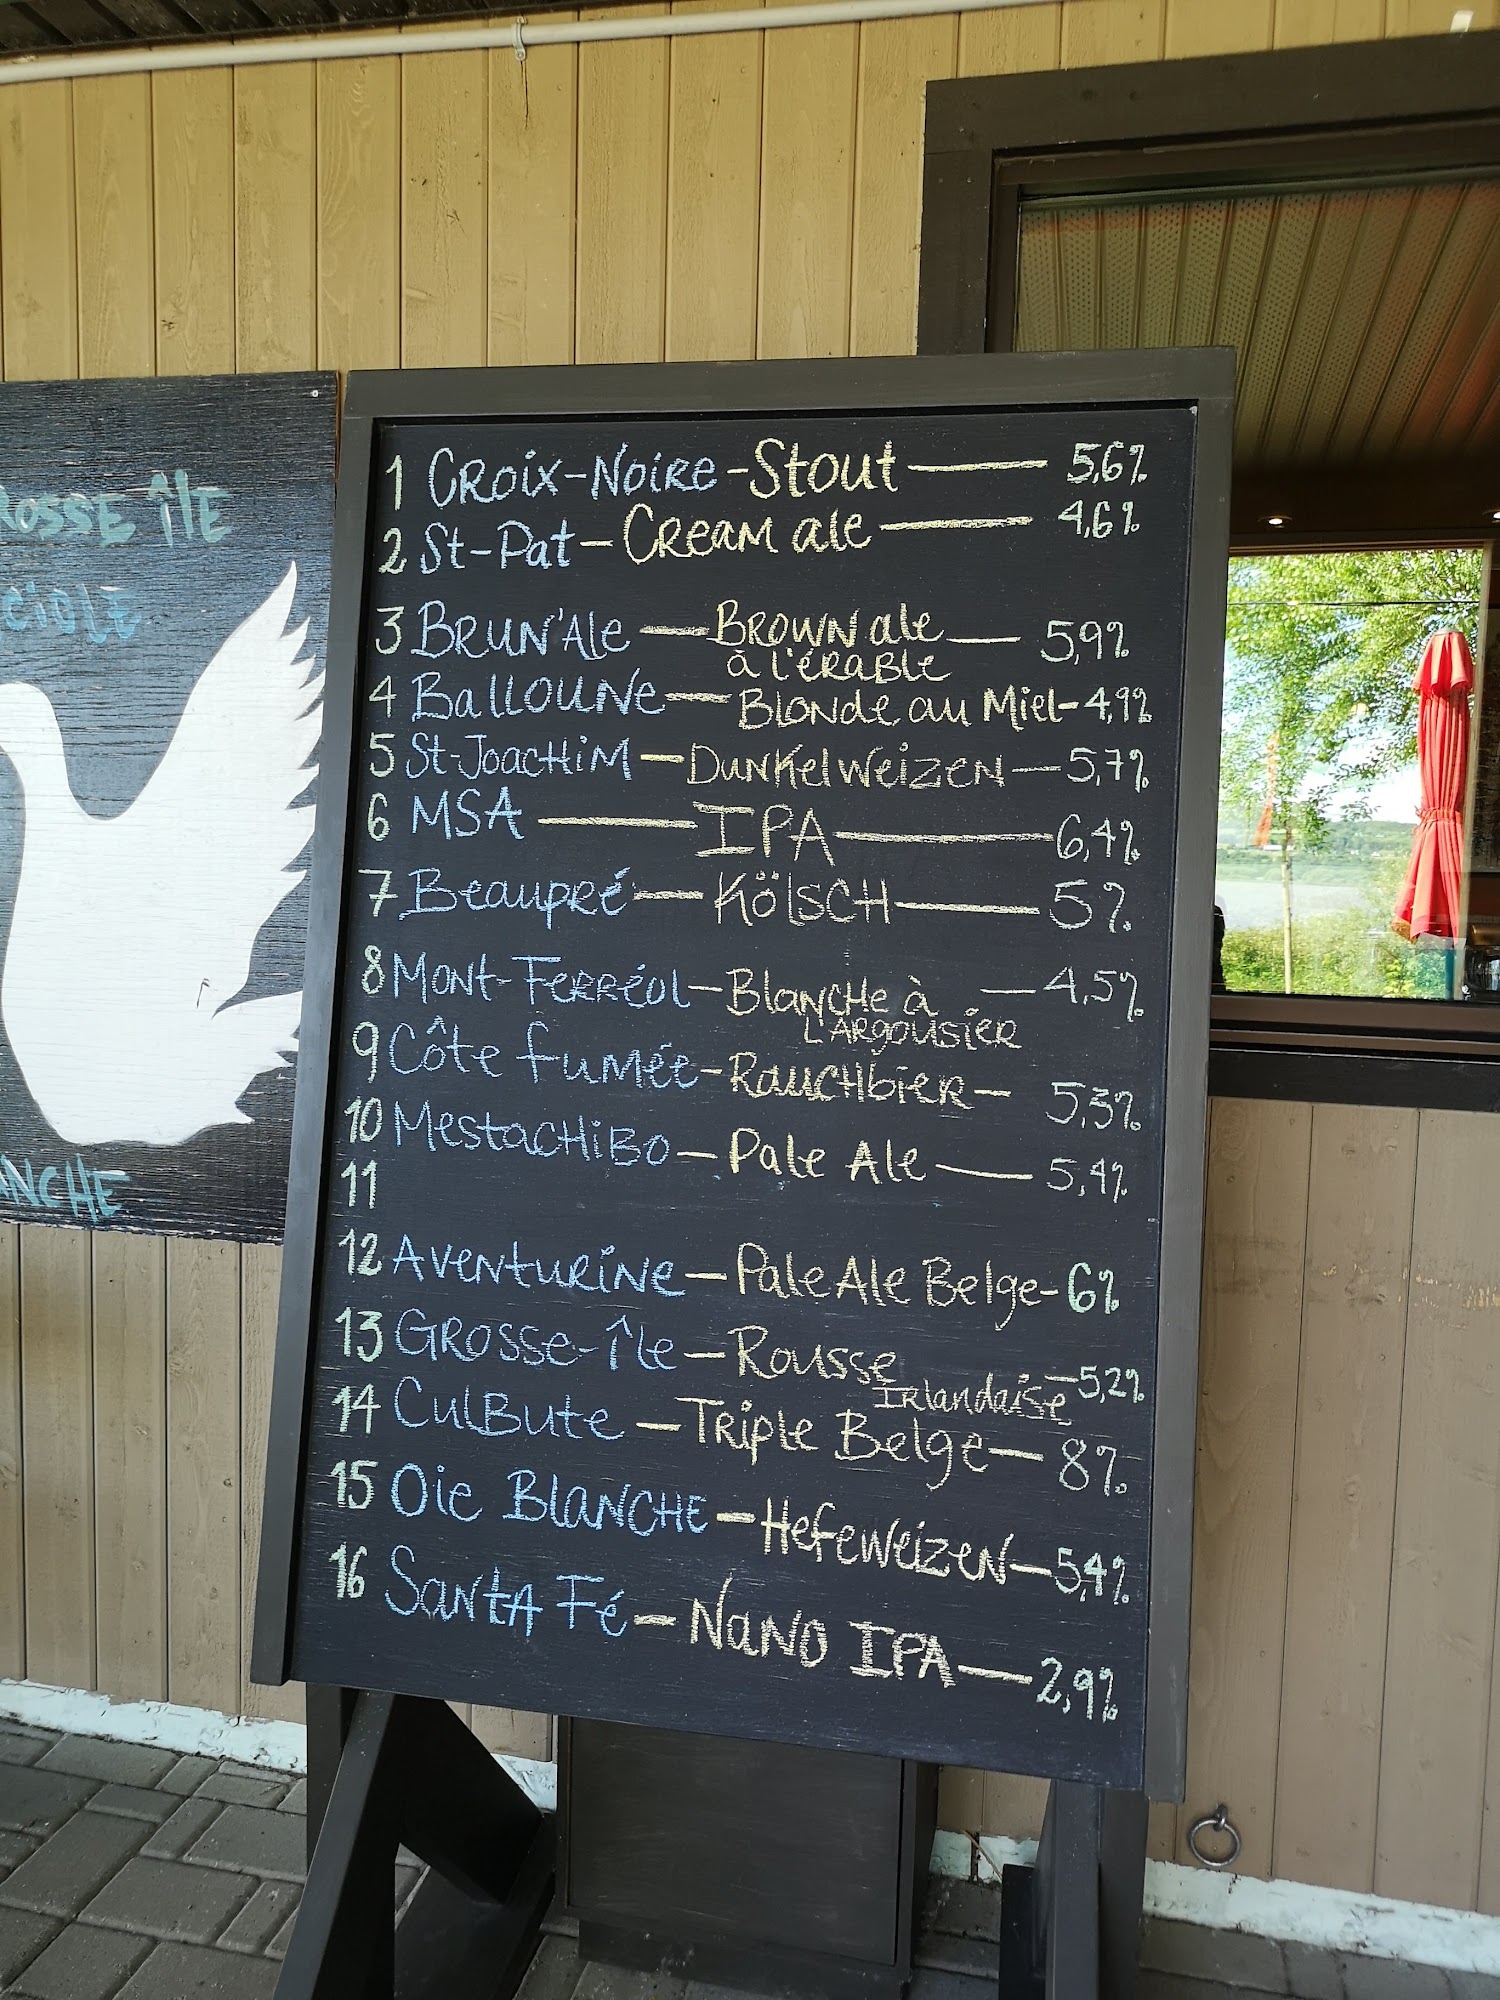 ROSSE ÎLE
CIOLE
ANCHE
1 Croix-Noire - Stout — 5,6%
2 St-Pat - Cream ale — 4,6%
3 Brun'Ale — Brown ale — 5,9%
à l'érable
4 Balloune — Blonde au Miel - 4,9%
5 St-Joachim — Dunkelweizen — 5,7%
6 MSA — IPA — 6,4%
7 Beaupré — Kölsch — 5%
8 Mont-Ferréol — Blanche à — 4,5%
l'Argousier
9 Côte fumée - Rauchbier — 5,3%
10 Mestachibo — Pale Ale — 5,4%
11
12 Aventurine — Pale Ale Belge - 6%
13 Grosse-Île — Rousse — 5,2%
Irlandaise
14 Culbute — Triple Belge — 8%
15 Oie Blanche — Hefeweizen — 5,4%
16 Santa Fé — Nano IPA — 2,9%